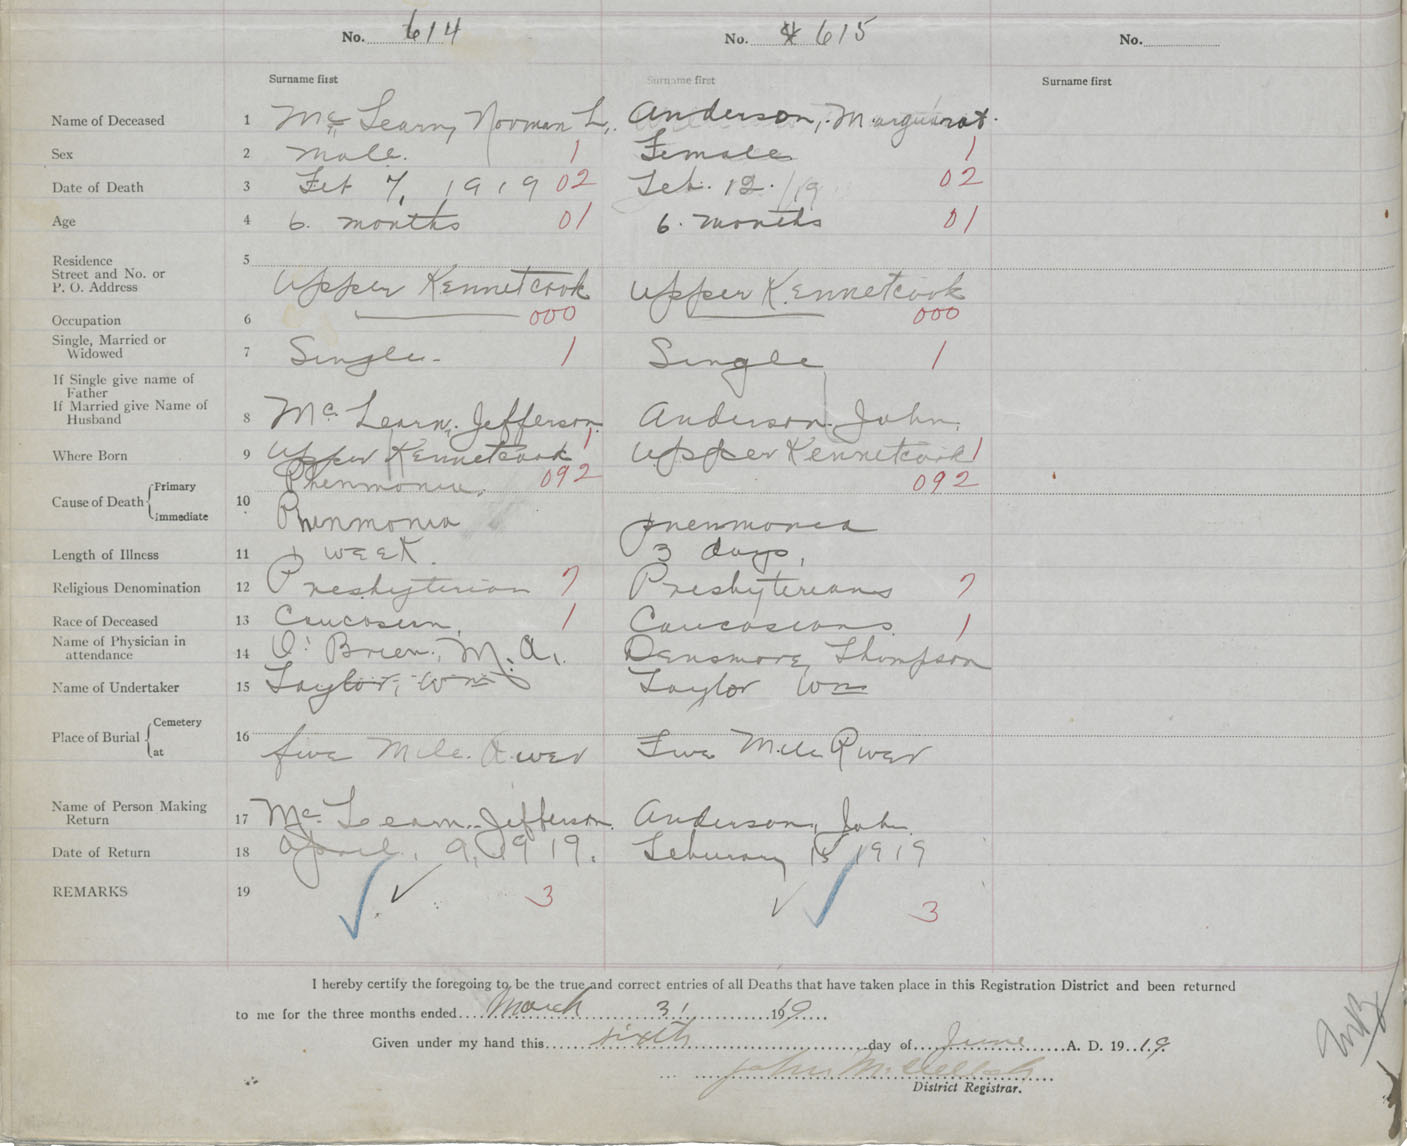 No. 614 No. 615 No.
Surname first Surname first Surname first
Name of Deceased 1 Mc Learn, Norman L. Anderson, Marguarat.
Sex 2 male. 1 Female 1
Date of Death 3 Feb 7, 1919 02 Feb. 12. /19 02
Age 4 6. months 01 6. months 01
Residence 5
Street and No. or
P. O. Address Upper Kennetcook Upper Kennetcook
Occupation 6 000 000
Single, Married or
Widowed 7 Single - 1 Single 1
If Single give name of
Father
If Married give Name of
Husband 8 Mc Learn, Jefferson Anderson John,
Where Born 9 Upper Kennetcook 1 Upper Kennetcook 1
Cause of Death Primary Phenmonia, 092 092
Immediate 10 Phenmonia pnenmonia
Length of Illness 11 1 week. 3 days,
Religious Denomination 12 Presbyterian 7 Presbyterians 7
Race of Deceased 13 Caucosian, 1 Caucosions 1
Name of Physician in
attendance 14 O'Brien, M. A,. Densmore, Thompson
Name of Undertaker 15 Taylor, Wm Taylor Wm
Place of Burial Cemetery
at 16 five Mile River Five Mile River
Name of Person Making
Return 17 Mc Learn, Jefferson. Anderson, John
Date of Return 18 April, 9, 1919. Feburary 15 1919
REMARKS 19 3 3
I hereby certify the foregoing to be the true and correct entries of all Deaths that have taken place in this Registration District and been returned
to me for the three months ended March 31 1919
Given under my hand this sixth day of June A. D. 1919.
John
District Registrar.